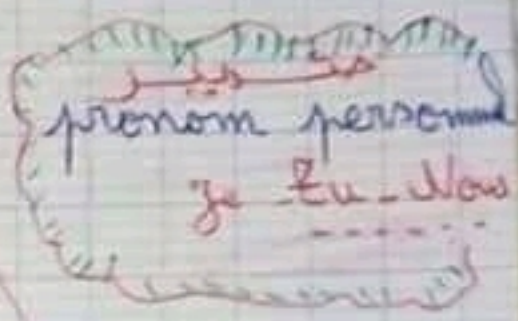 ضمير
pronom personnel
Je - Tu - Nous
- - - - - -